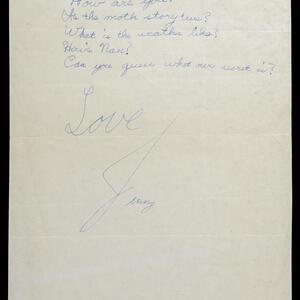 How are you?
Is the moth story true?
What is the weather like?
How's Nan?
Can you guess what our secret is?
Love
Jenny